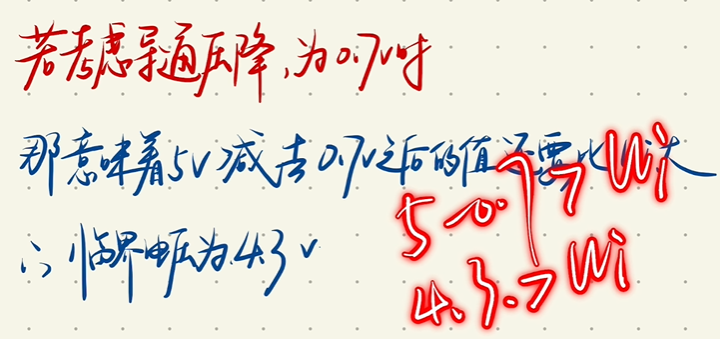 若考虑导通压降,为0.7V时
那意味着5V减去0.7V之后的值还要比Ui大
∴临界电压为4.3V
5-0.7>Ui
4.3>Ui